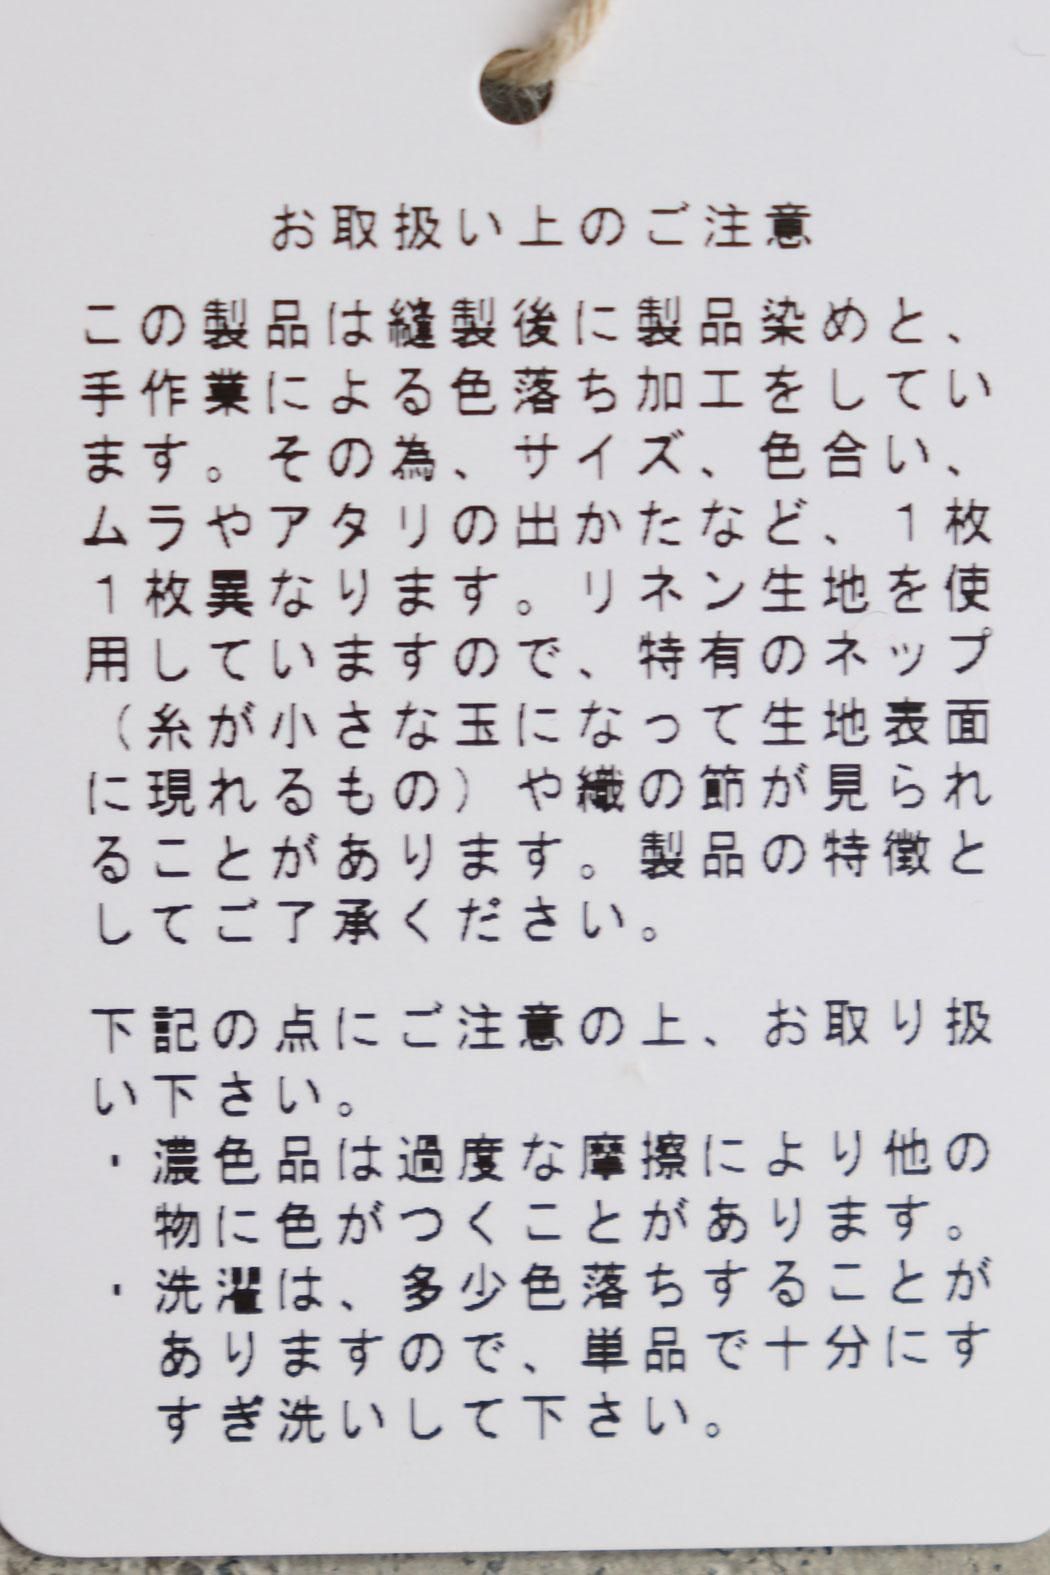 お取扱い上のご注意
この製品は縫製後に製品染めと、
手作業による色落ち加工をしてい
ます。その為、サイズ、色合い、
ムラやアタリの出かたなど、1枚
1枚異なります。リネン生地を使
用していますので、特有のネップ
（糸が小さな玉になって生地表面
に現れるもの）や織の節が見られ
ることがあります。製品の特徴と
してご了承ください。
下記の点にご注意の上、お取り扱
い下さい。
・濃色品は過度な摩擦により他の
物に色がつくことがあります。
・洗濯は、多少色落ちすることが
ありますので、単品で十分にす
すぎ洗いして下さい。